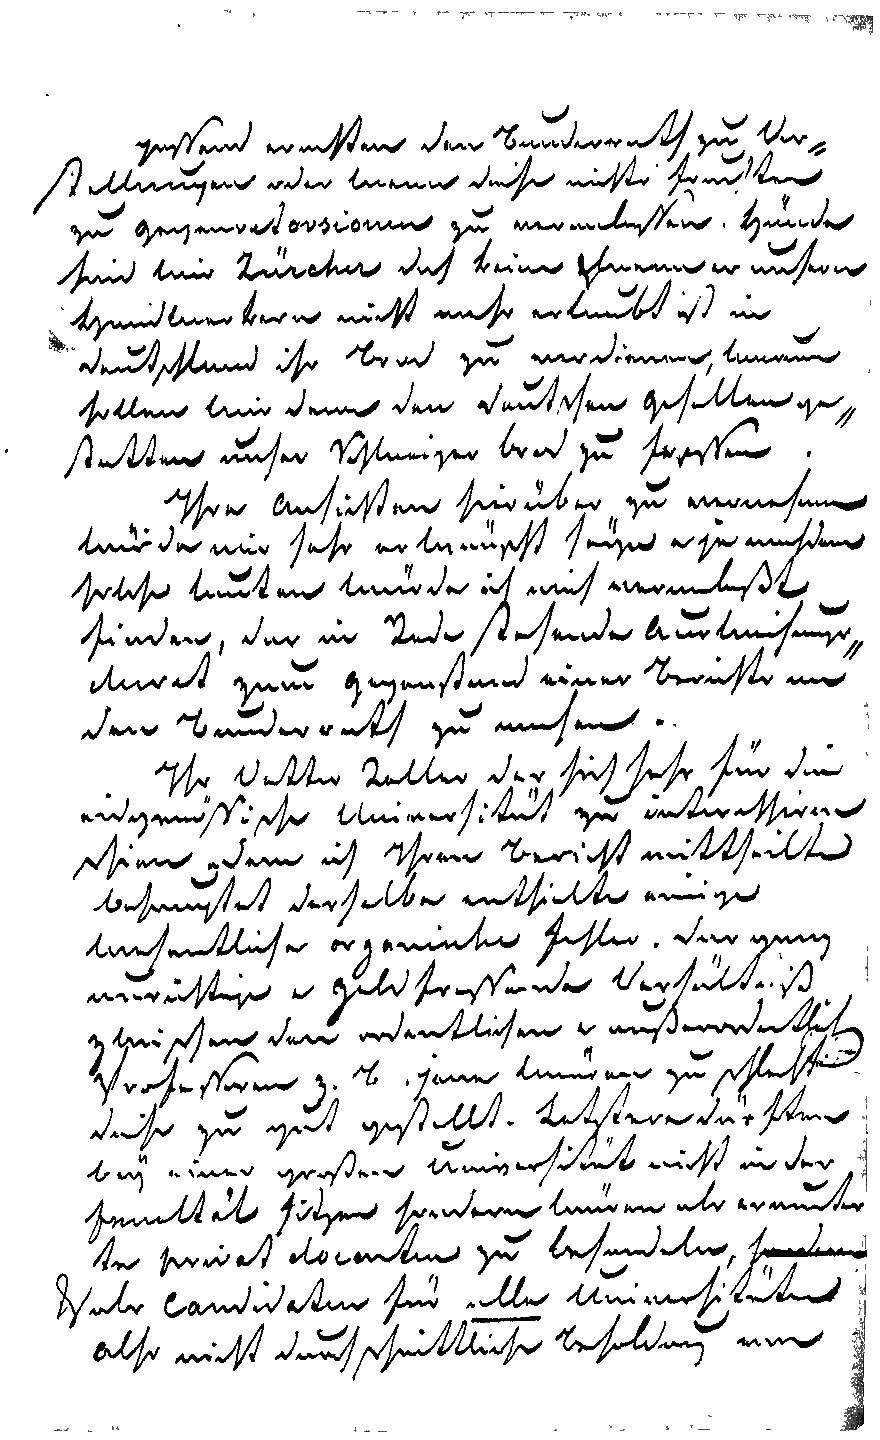 passend erachten den Bundesrath zu Vor=
stellungen oder wenn diese nichts fruchten
zu Gegenretorsionen zu veranlassen.
sind wir Zürcher daß keine unsern
Handwerkern nicht mehr erlaubt ist in
Deutschland ihr Brod zu verdienen, warum
sollen wir denn den deutschen Gesellen ge=
statten unser Schweizer brod zu fressen.
Ihre Ansichten hierüber zu vernehmen
würde mir sehr erwünscht seyn & je nachdem
solche lauten würde ich mich veranlaßt
finden, der in Rede stehende Ausweisungs=
zum Gegenstand eines Berichts an
den Bundesrath zu machen.
Ihr Vetter Zeller der sich sehr für die
eidgenößische Universität zu interessiren
schien & dem ich Ihren Bericht mittheilte
behauptet derselbe enthielte einige
wesentliche organische Fehler. Das ganz
unrichtige & Geld fressende Verhältniß
zwischen den ordentlichen & außerordentlichen
Professoren z. B. jene wären zu schlecht
diese zu gut gestellt. Letztere dürften
bey einer großen Universität nicht in der
Facultät sitzen sondern wären als ermunter
te privat docenten zu behandeln,
als Candidaten für alle Universitäten
also nicht durchschnittliche Besoldung von